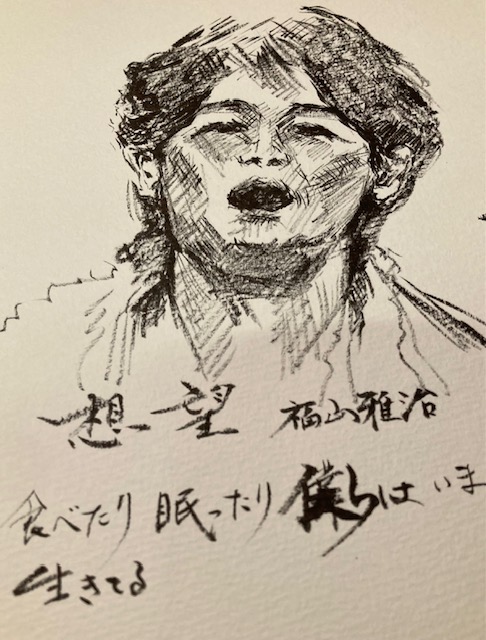 想望 福山雅治
食べたり 眠ったり 僕らは いま
生きてる